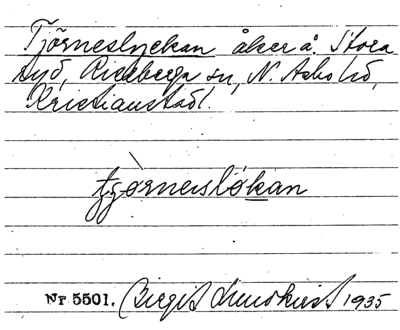 Tjörneslyckan åker å. Stora
byd, Riseberga sn, N. Asbo hd,
Kristianstads l.
tjòrneslökan
Nr 5501. Birgit Lundkvist 1935